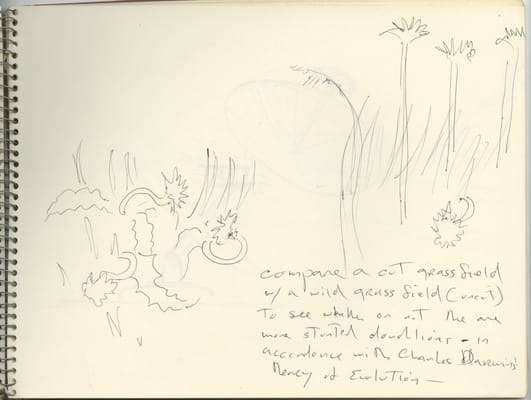 compare a cut grass field
w/ a wild grass field (uncut)
to see whether or not the are
more stunted dandlions - in
accordance with Charles Darwin's
Theory of Evolution -